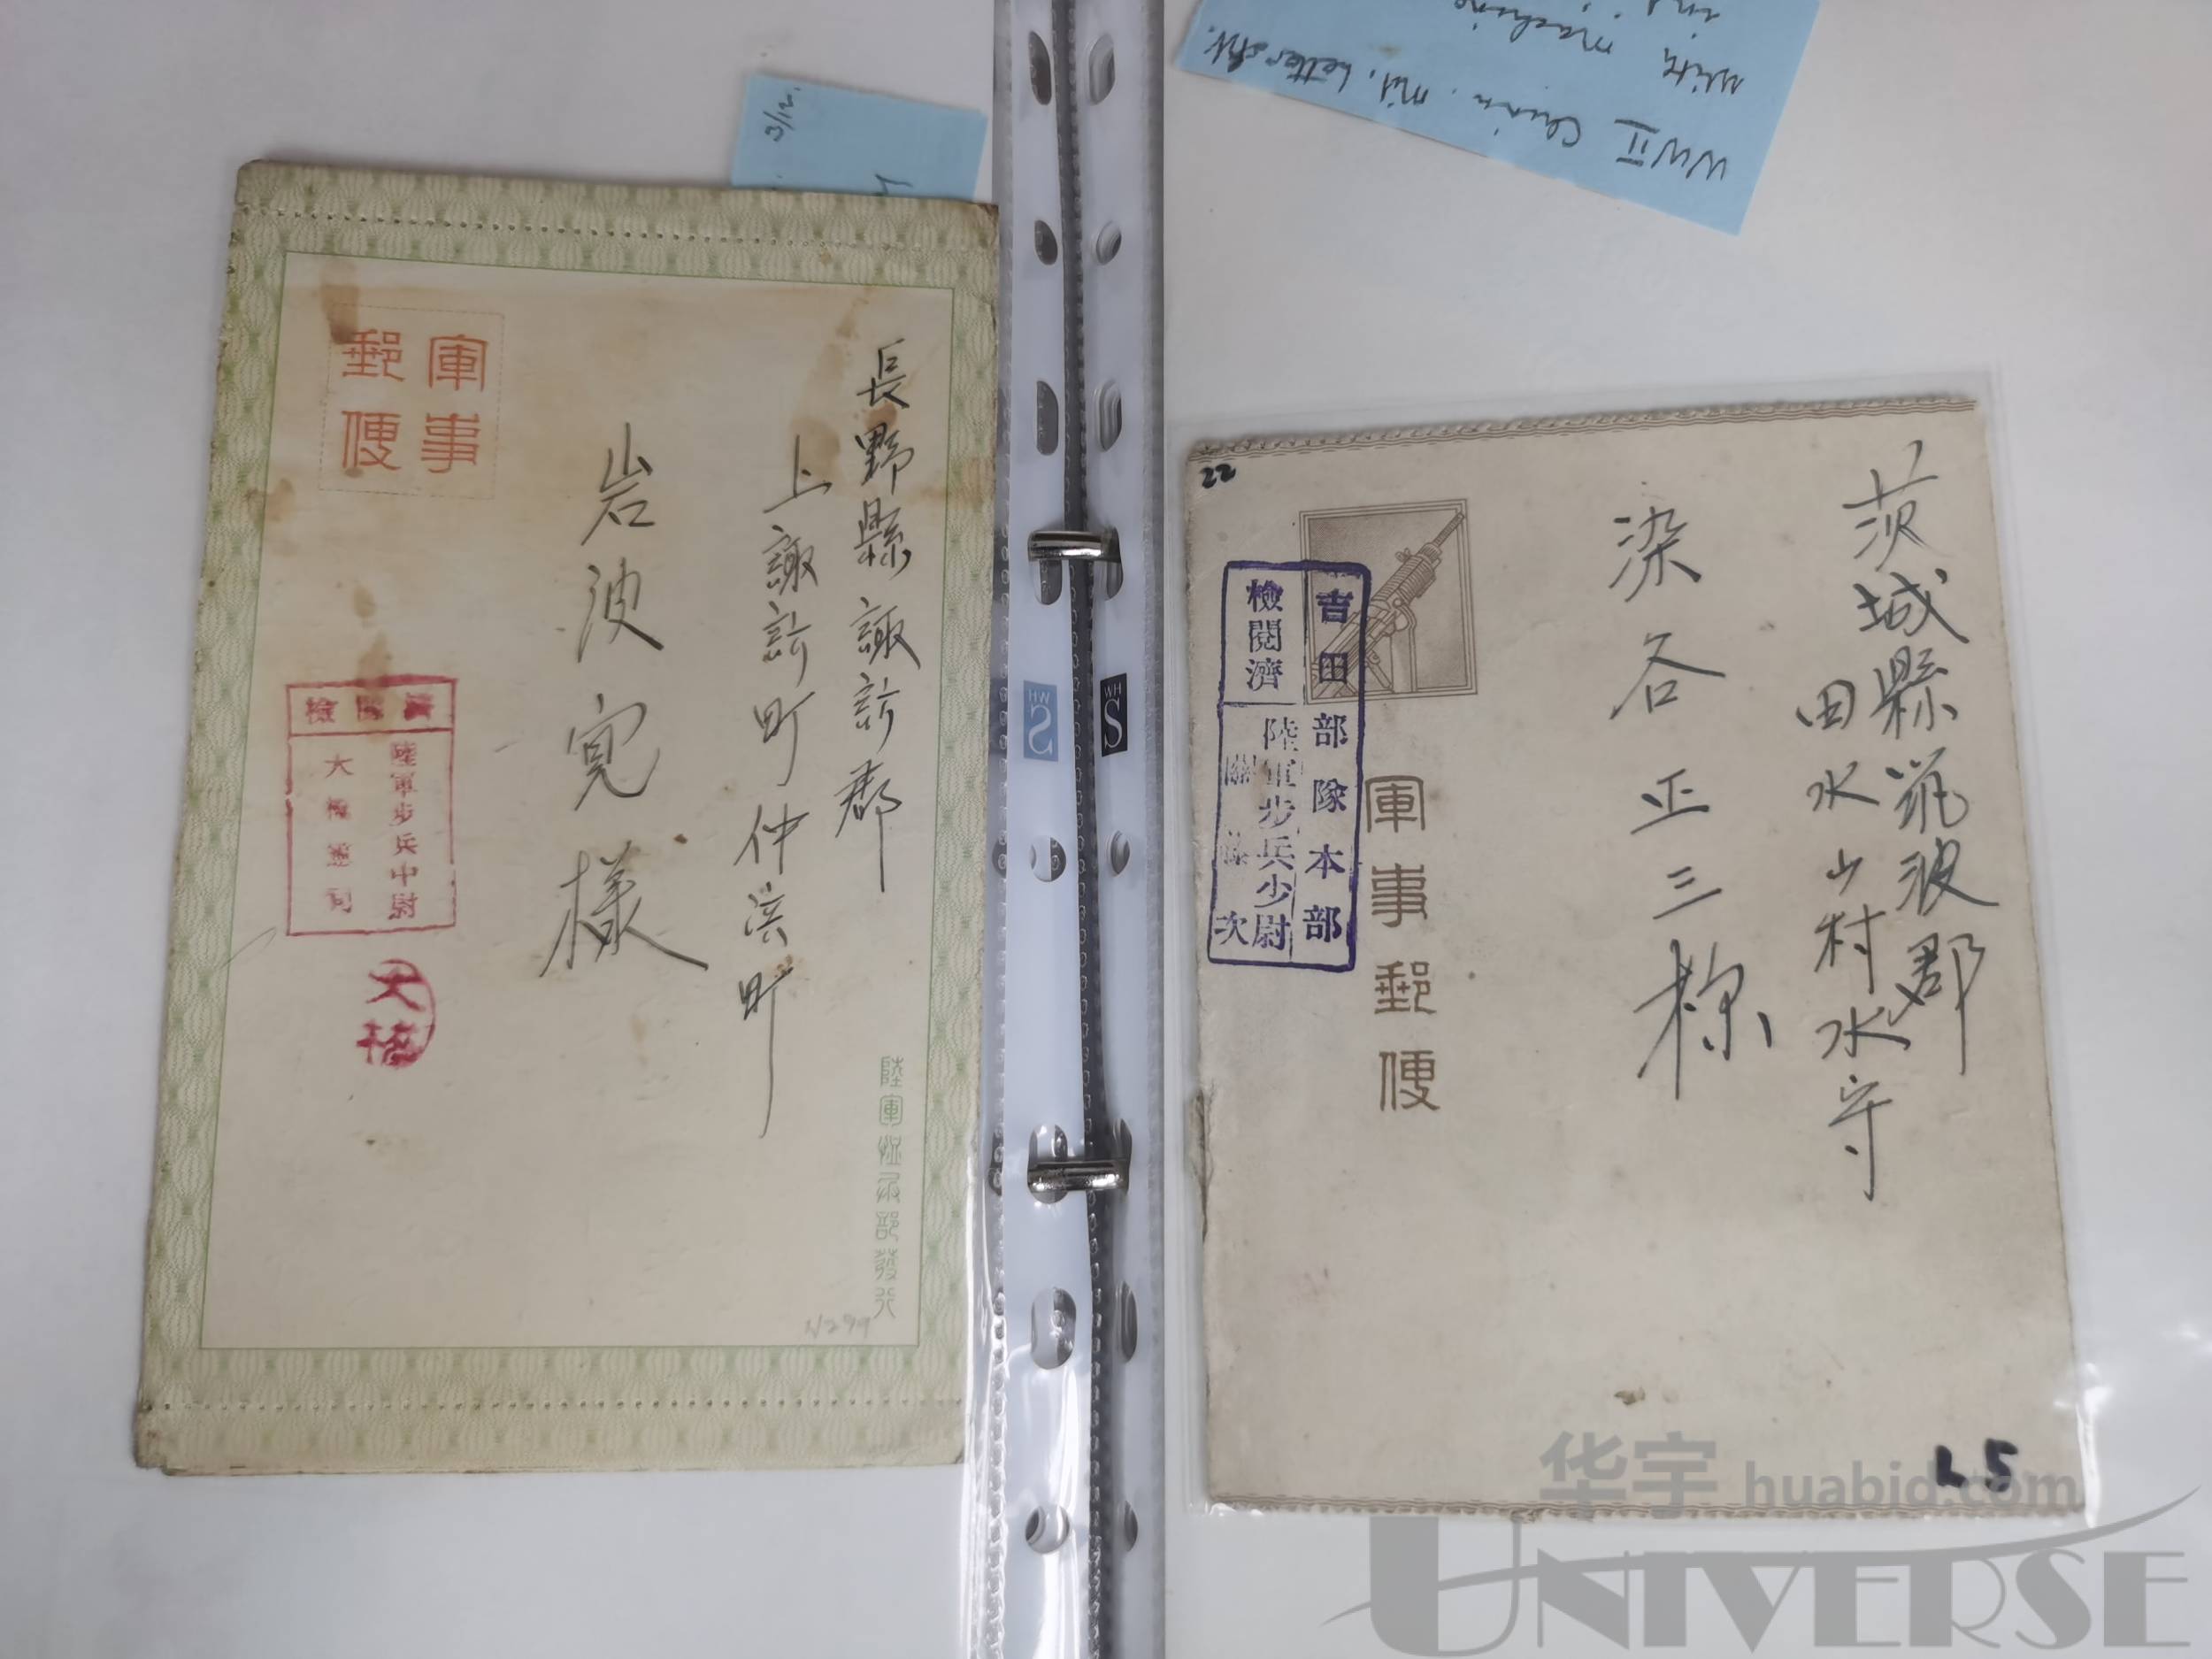 3/12.
軍事
郵便
長野縣諏訪郡
上諏訪町仲浜町
岩波寛様
檢閲濟
陸軍步兵中尉
大橋
大橋
陸軍恤兵部發行
N299
WH
S
WWII Chin. mil. Letter sht.
with machine
22
茨城縣筑波郡
田水山村水守
染谷正三様
軍事郵便
吉田部隊本部
檢閱濟
陸軍步兵少尉
次
L5
华宇 huabid.com
UNIVERSE